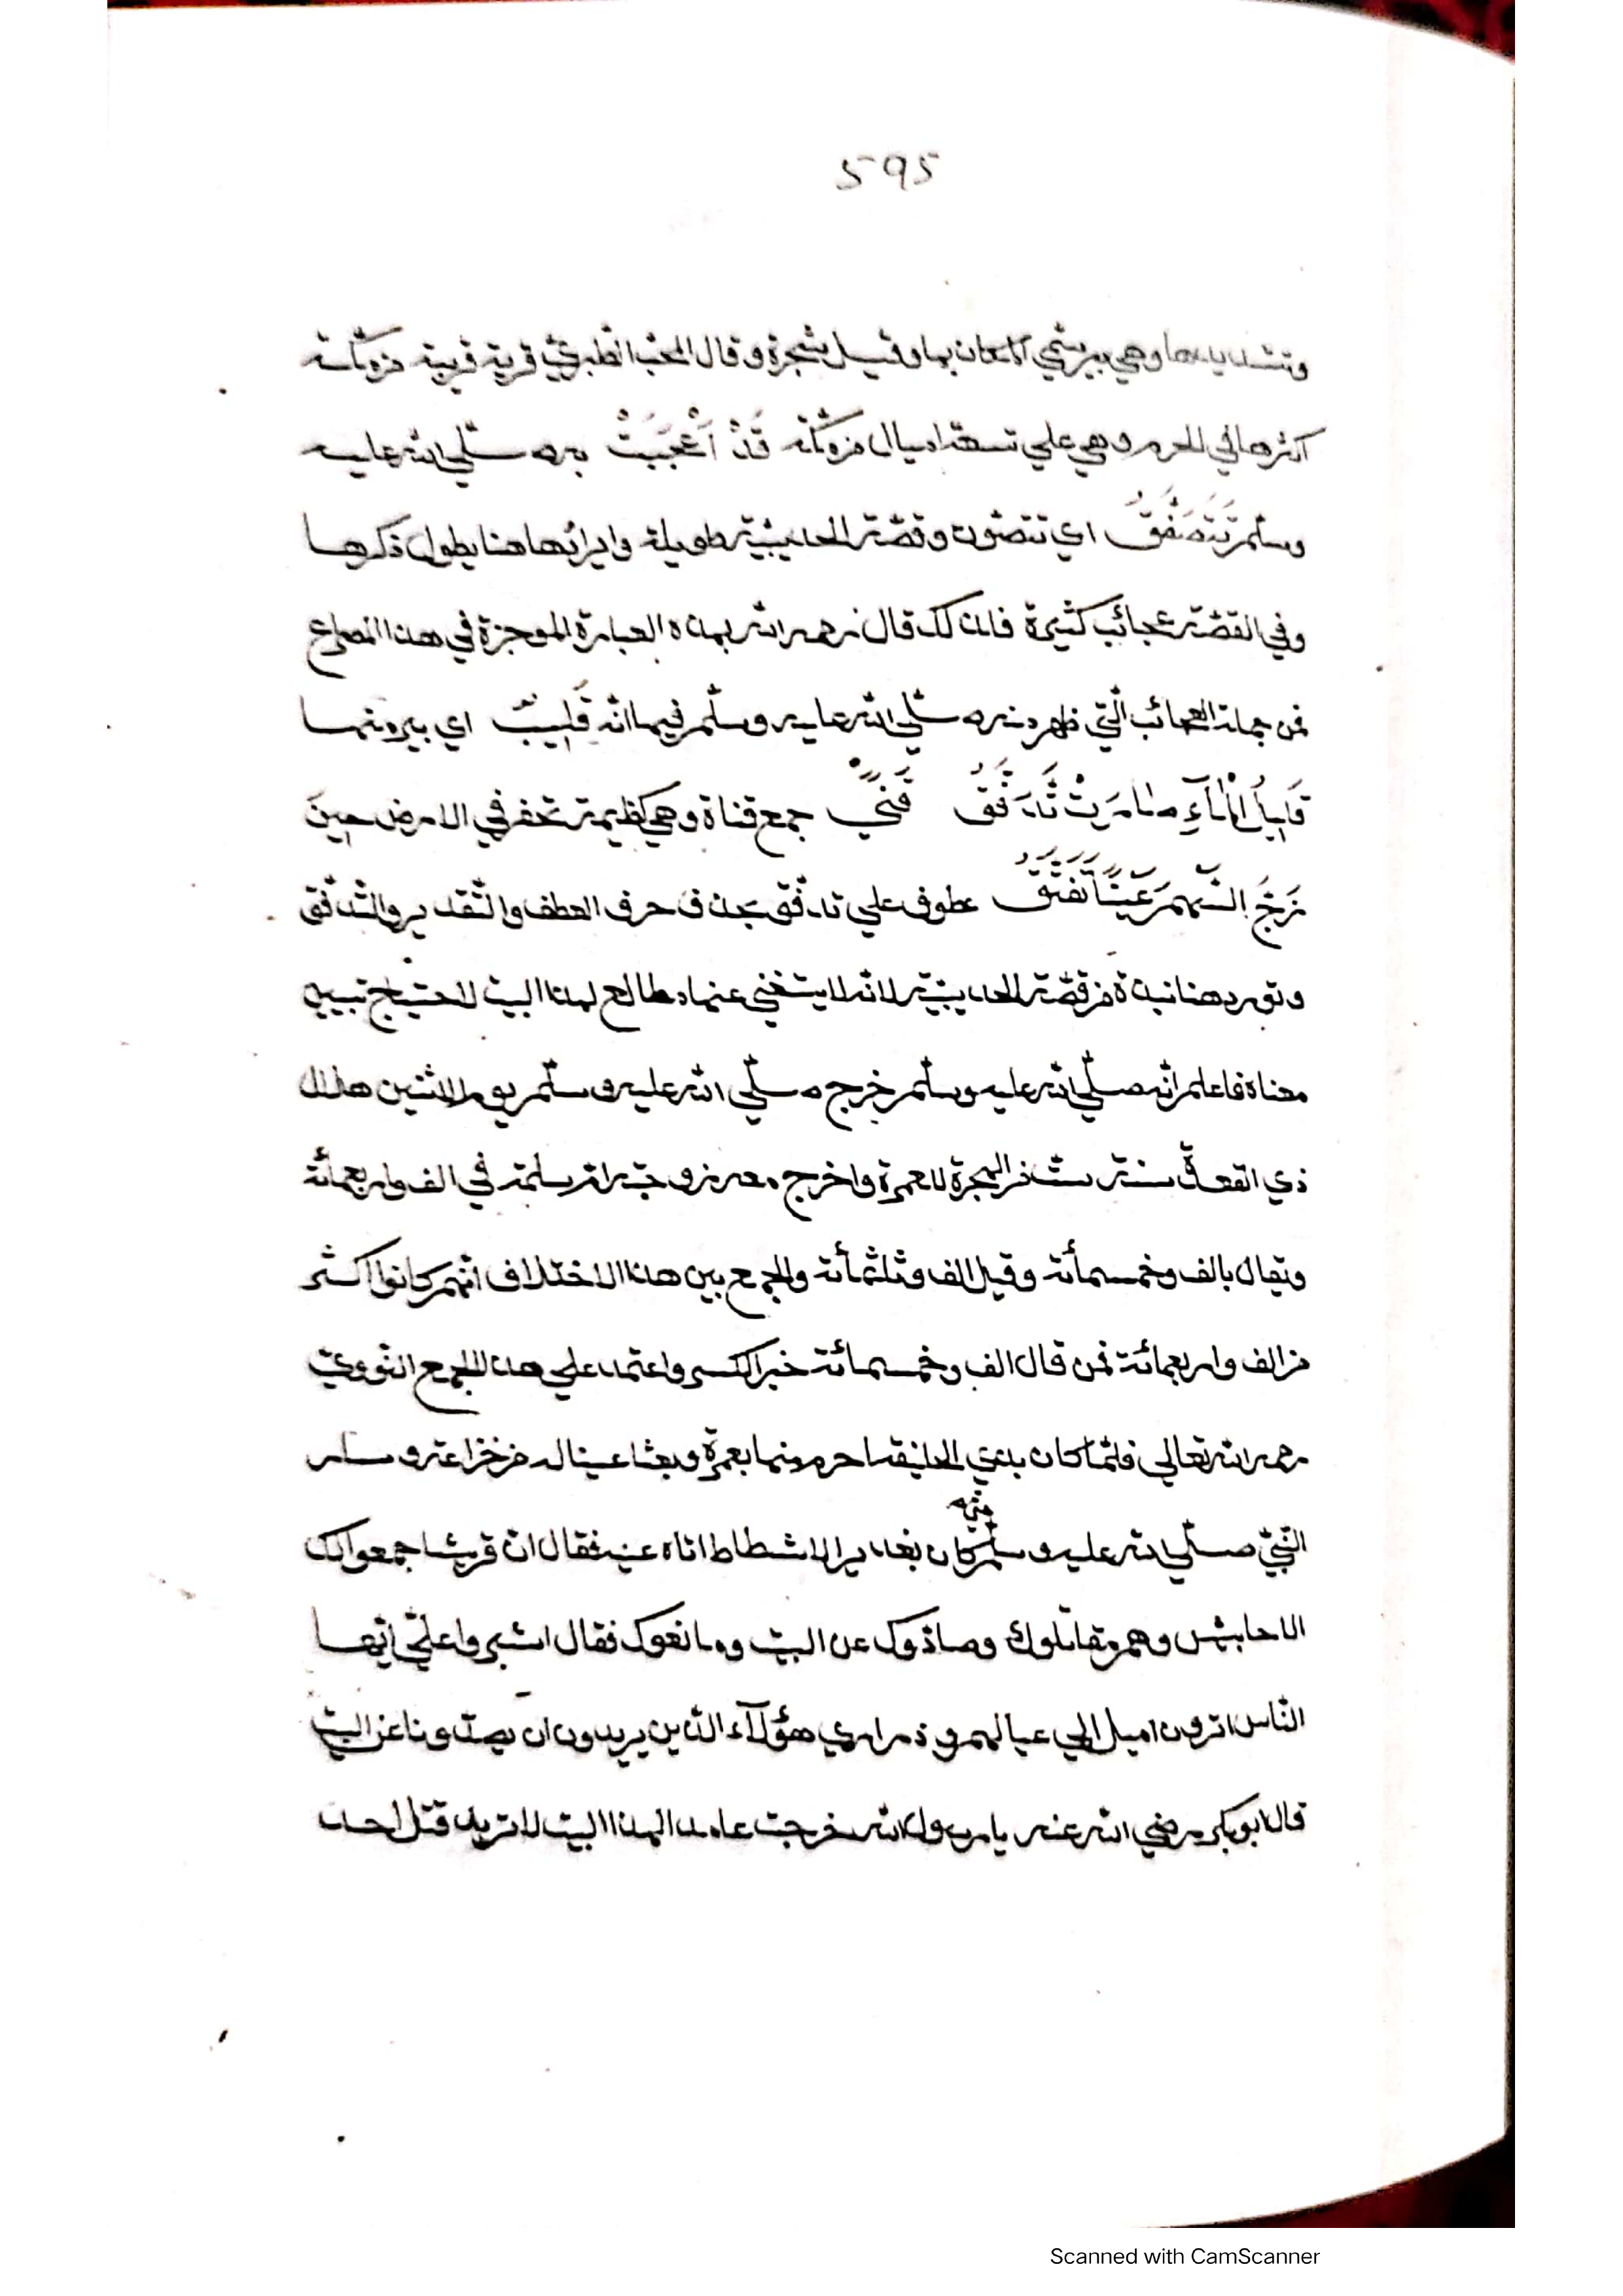 595
وتشديدها وهي بير سمي المكان بها وقيل شجرة وقال المحب الطبري قرية قريبة من مكة
اكثرها في الحرم وهي علي تسعة اميال من مكة قَدْ اَعْجَبَتْ به صلي الله عليه
وسلم تَتَصَفَّقُ اي تتصون وقصة الحديبية طويلة وايرادها هنا يطول ذكرها
وفي القصة عجائب كثيرة فلذلك قال رحمه الله بهذه العبارة الموجزة في هذا المصراع
فمن جملة العجائب التي ظهر منه صلي الله عليه وسلم فيها انه قَلِيبٌ اي بير ومنها
قَلِيلُ الْمَآءِ صَارَتْ تَدَفَّقُ قنيّ جمع قناة وهي كظيمة تحفر في الارض حِينَ
زَجَّ السَّهْمَ عَيْنًا تَفَتَّقُ عطوف علي تدفق بحذف حرف العطف والتقدير والتدفق
ونورد هنا نبذة من قصة الحديبية لانه لا يستغني عنها مطالع لهذا البيت لاحتياج تبيين
معناه فاعلم انه صلي الله عليه وسلم خرج صلي الله عليه وسلم يوم الاثنين هلال
ذي القعدة سنة ست من الهجرة للعمرة واخرج معه زوجته ام سلمة في الف واربعمأة
ويقال بالف وخمسمأة وقيل الف وثلثمأة والجمع بين هذا الاختلاف انهم كانوا اكثر
من الف واربعمائة فمن قال الف وخمسمائة خبر الكسر واعتمد علي هذا الجمع النووي
رحمه الله تعالي فلما كان بذي الحليفة احرم منها بعمرة وبعث عينا له من خزاعة وسار
النبي صلي الله عليه وسلم حتي كان بغدير الاشطاط اتاه عينه فقال ان قريشا جمعوا لك
الاحابيش وهم مقاتلوك وصادوك عن البيت ومانعوك فقال اشيروا علي ايها
الناس اترون اميل الي عيالهم وذراري هؤلآء الذين يريدون ان يصدونا عن البيت
قال ابو بكر رضي الله عنه يا رسول الله خرجت عامدا لهذا البيت لا تريد قتل احد
Scanned with CamScanner